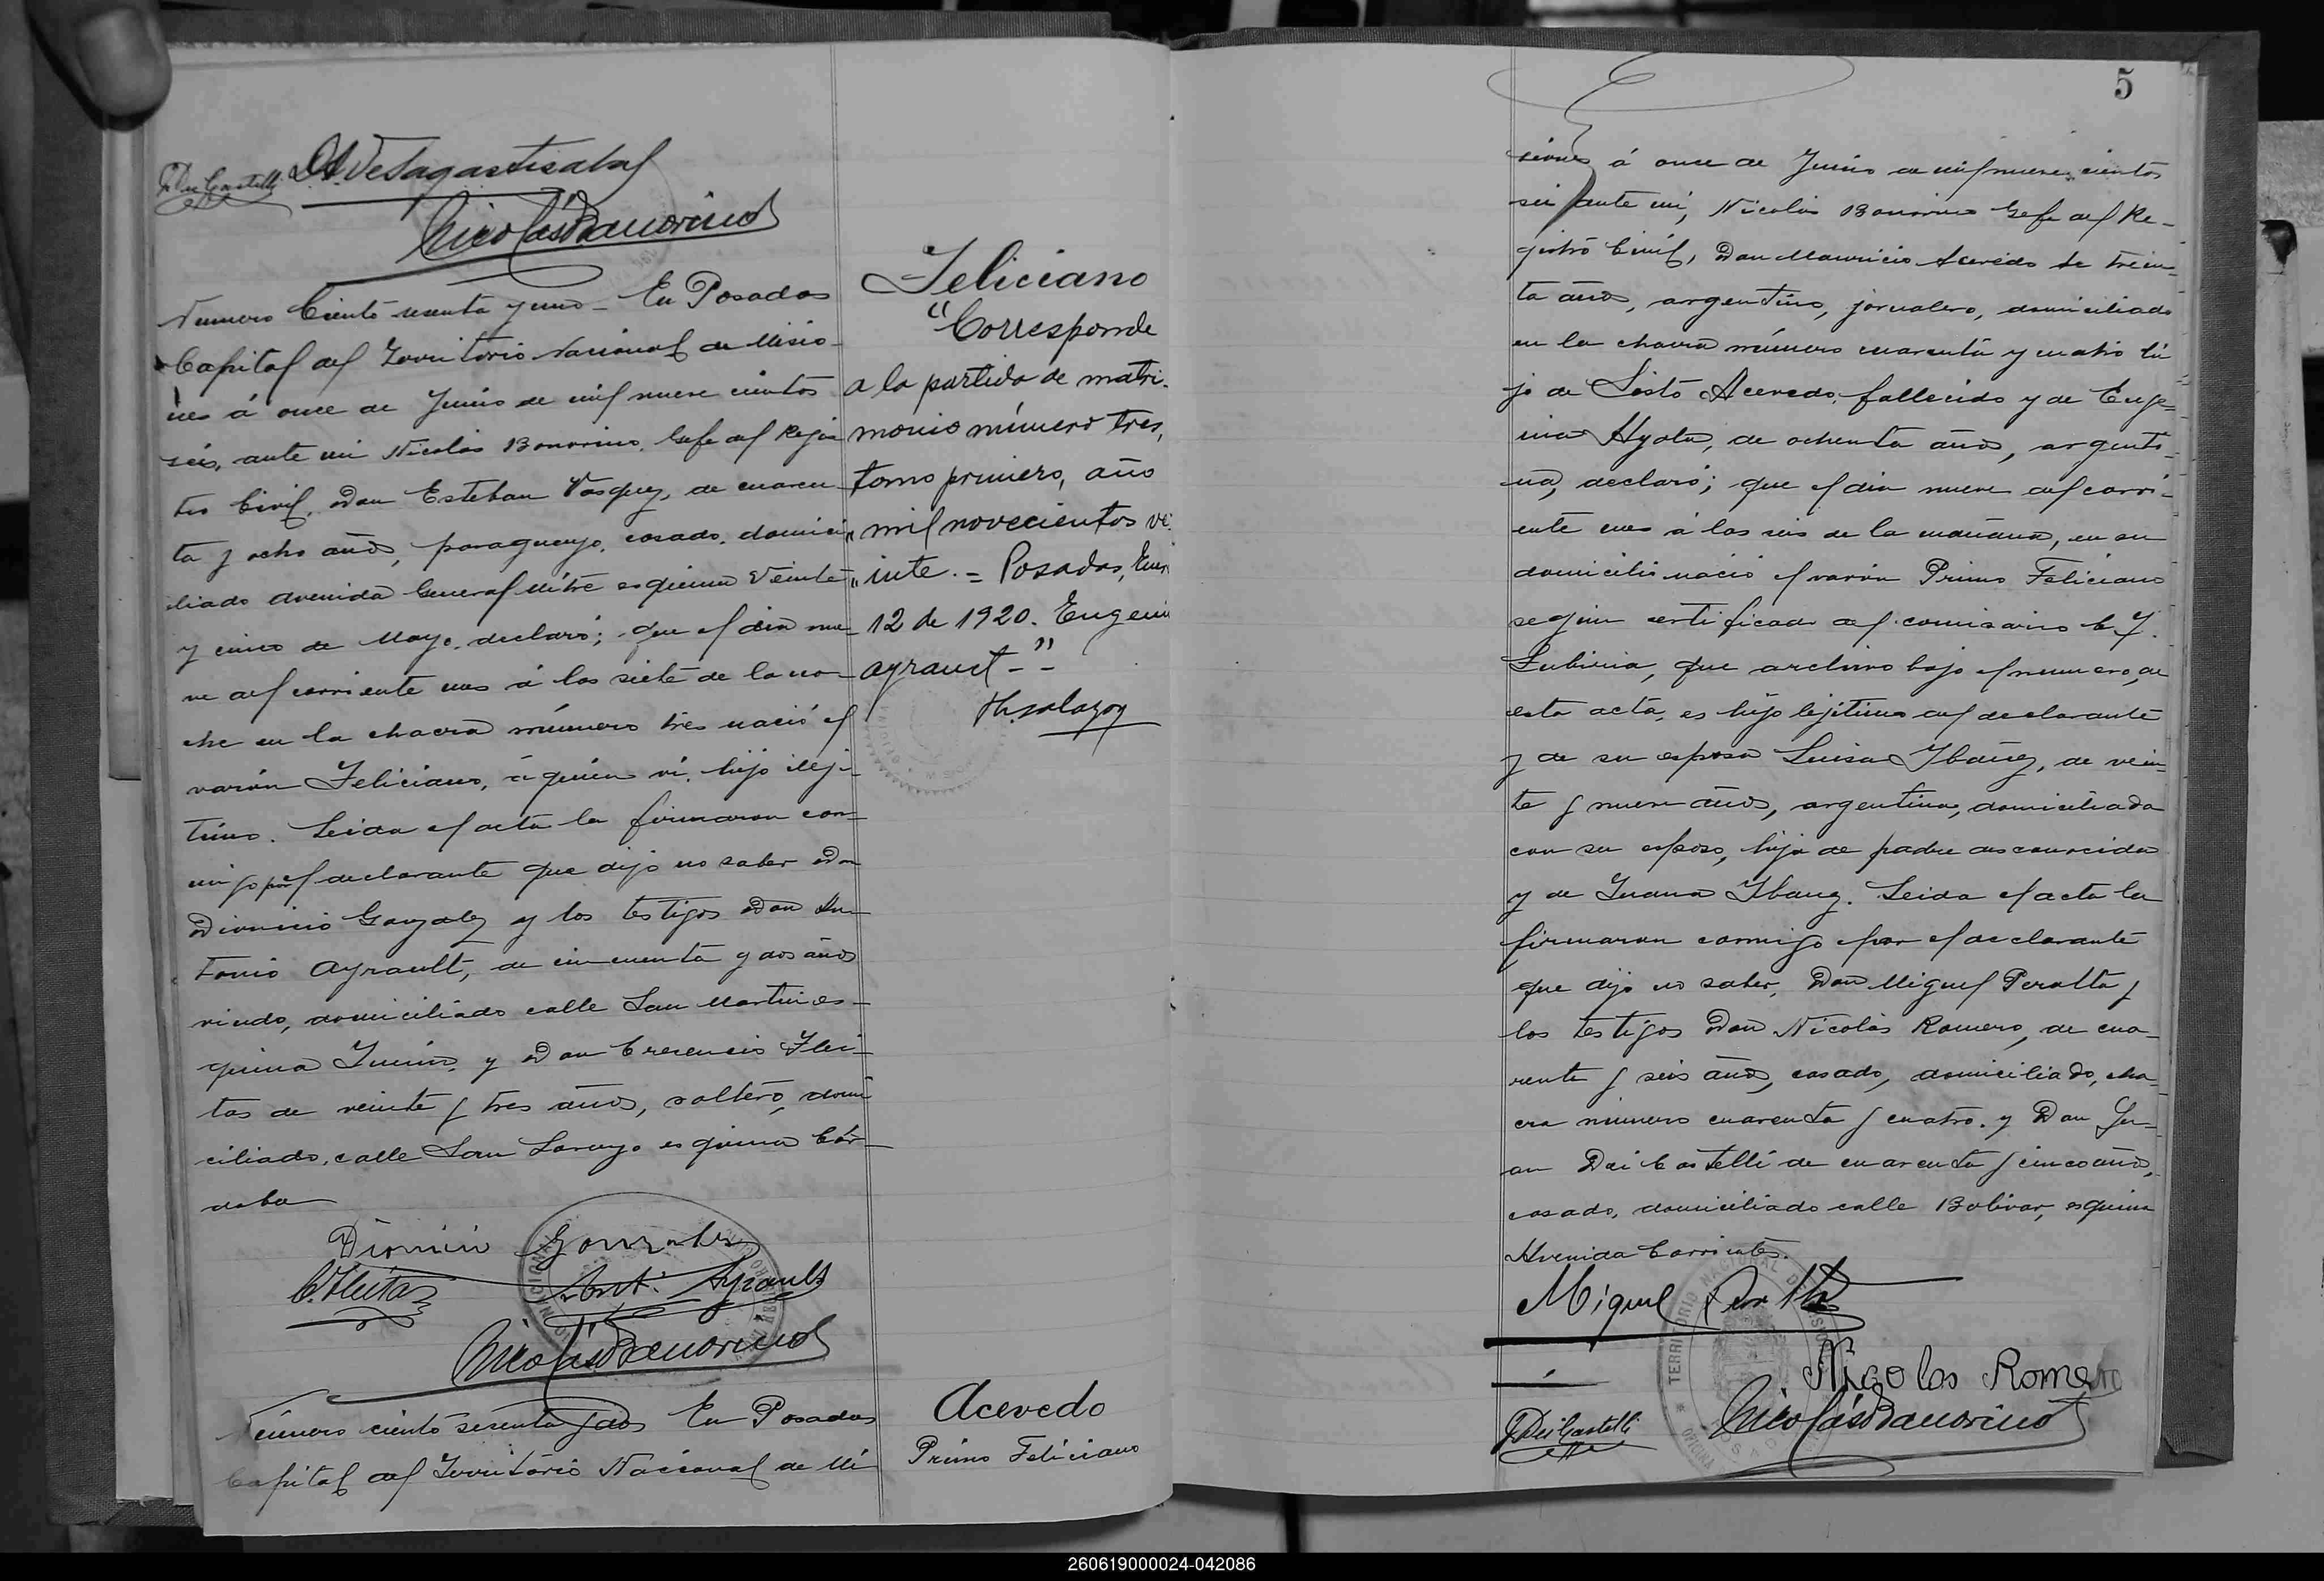 J Dei Castelli
Nicolás Bonorino
Número Ciento sesenta y uno - En Posadas
Capital del Territorio Nacional de Misio-
nes á once de Junio de mil nueve cientos
seis, ante mi Nicolás Bonorino, Gefe del Regis
tro Civil, Don Esteban Vasquez, de cuaren
ta y ocho años, paraguayo, casado, domici
liado Avenida General Mitre esquina Veinte
y cinco de Mayo, declaró; que el dia nue
ve del corriente mes á las siete de la no-
che en la chacra número tres nació el
varón Feliciano, á quien ví, hijo ileji-
timo. Leida el acta la firmaron con-
migo por el declarante que dijo no saber Don
Dionicio Gonzalez y los testigos Don An-
tonio Ayrault, de cincuenta y dos años
viudo, domiciliado calle San Martin es-
quina Junin, y Don Crecencio Flei-
tas de veinte y tres años, soltero, domi
ciliado, calle San Lorenzo esquina Cór-
doba
Dionicio Gonzalez
C. Fleitas Ant. Ayrault
Nicolás Bonorino
Número ciento sesenta y dos En Posadas
Capital del Territorio Nacional de Mi
Feliciano
"Corresponde
a la partida de matri-
monio número tres,
tomo primero, año
"mil novecientos ve
"inte. = Posadas, Ener
12 de 1920. Eugenio
Ayrault - "
H. Salazar
Acevedo
Primo Feliciano
5
siones á once de Junio de mil nueve cientos
seis ante mi, Nicolás Bonorino Gefe del Re-
gistro Civil, Don Mauricio Acevedo de trein-
ta años, argentino, jornalero, domiciliado
en la chacra número cuarenta y cuatro hi
jo de Sisto Acevedo, fallecido y de Euge-
nia Ayala, de ochenta años, argenti-
na, declaró; que el dia nueve del corri-
ente mes á las seis de la mañana, en su
domicilio nació el varón Primo Feliciano
segun certificado del comisario C. J.
Lubinia, que archivo bajo el numero, de
esta acta, es hijo lejitimo del declarante
y de su esposa Luisa Ybañez, de vein-
te y nueve años, argentina, domiciliada
con su esposo, hija de padre desconocido
y de Juana Ybañez. Leida el acta la
firmaron conmigo por el declarante
que dijo no saber, Don Miguel Peralta y
los testigos Don Nicolás Romero, de cua-
renta y seis años, casado, domiciliado, cha-
cra número cuarenta y cuatro, y Don Ju-
an Dei Castelli de cuarenta y cinco años,
casado, domiciliado calle Bolivar, esquina
Avenida Corrientes.
Miguel Peralta
TERRITORIO NACIONAL DE MISIONES
Nicolas Romero
J Dei Castelli Nicolás Bonorino
260619000024-042086